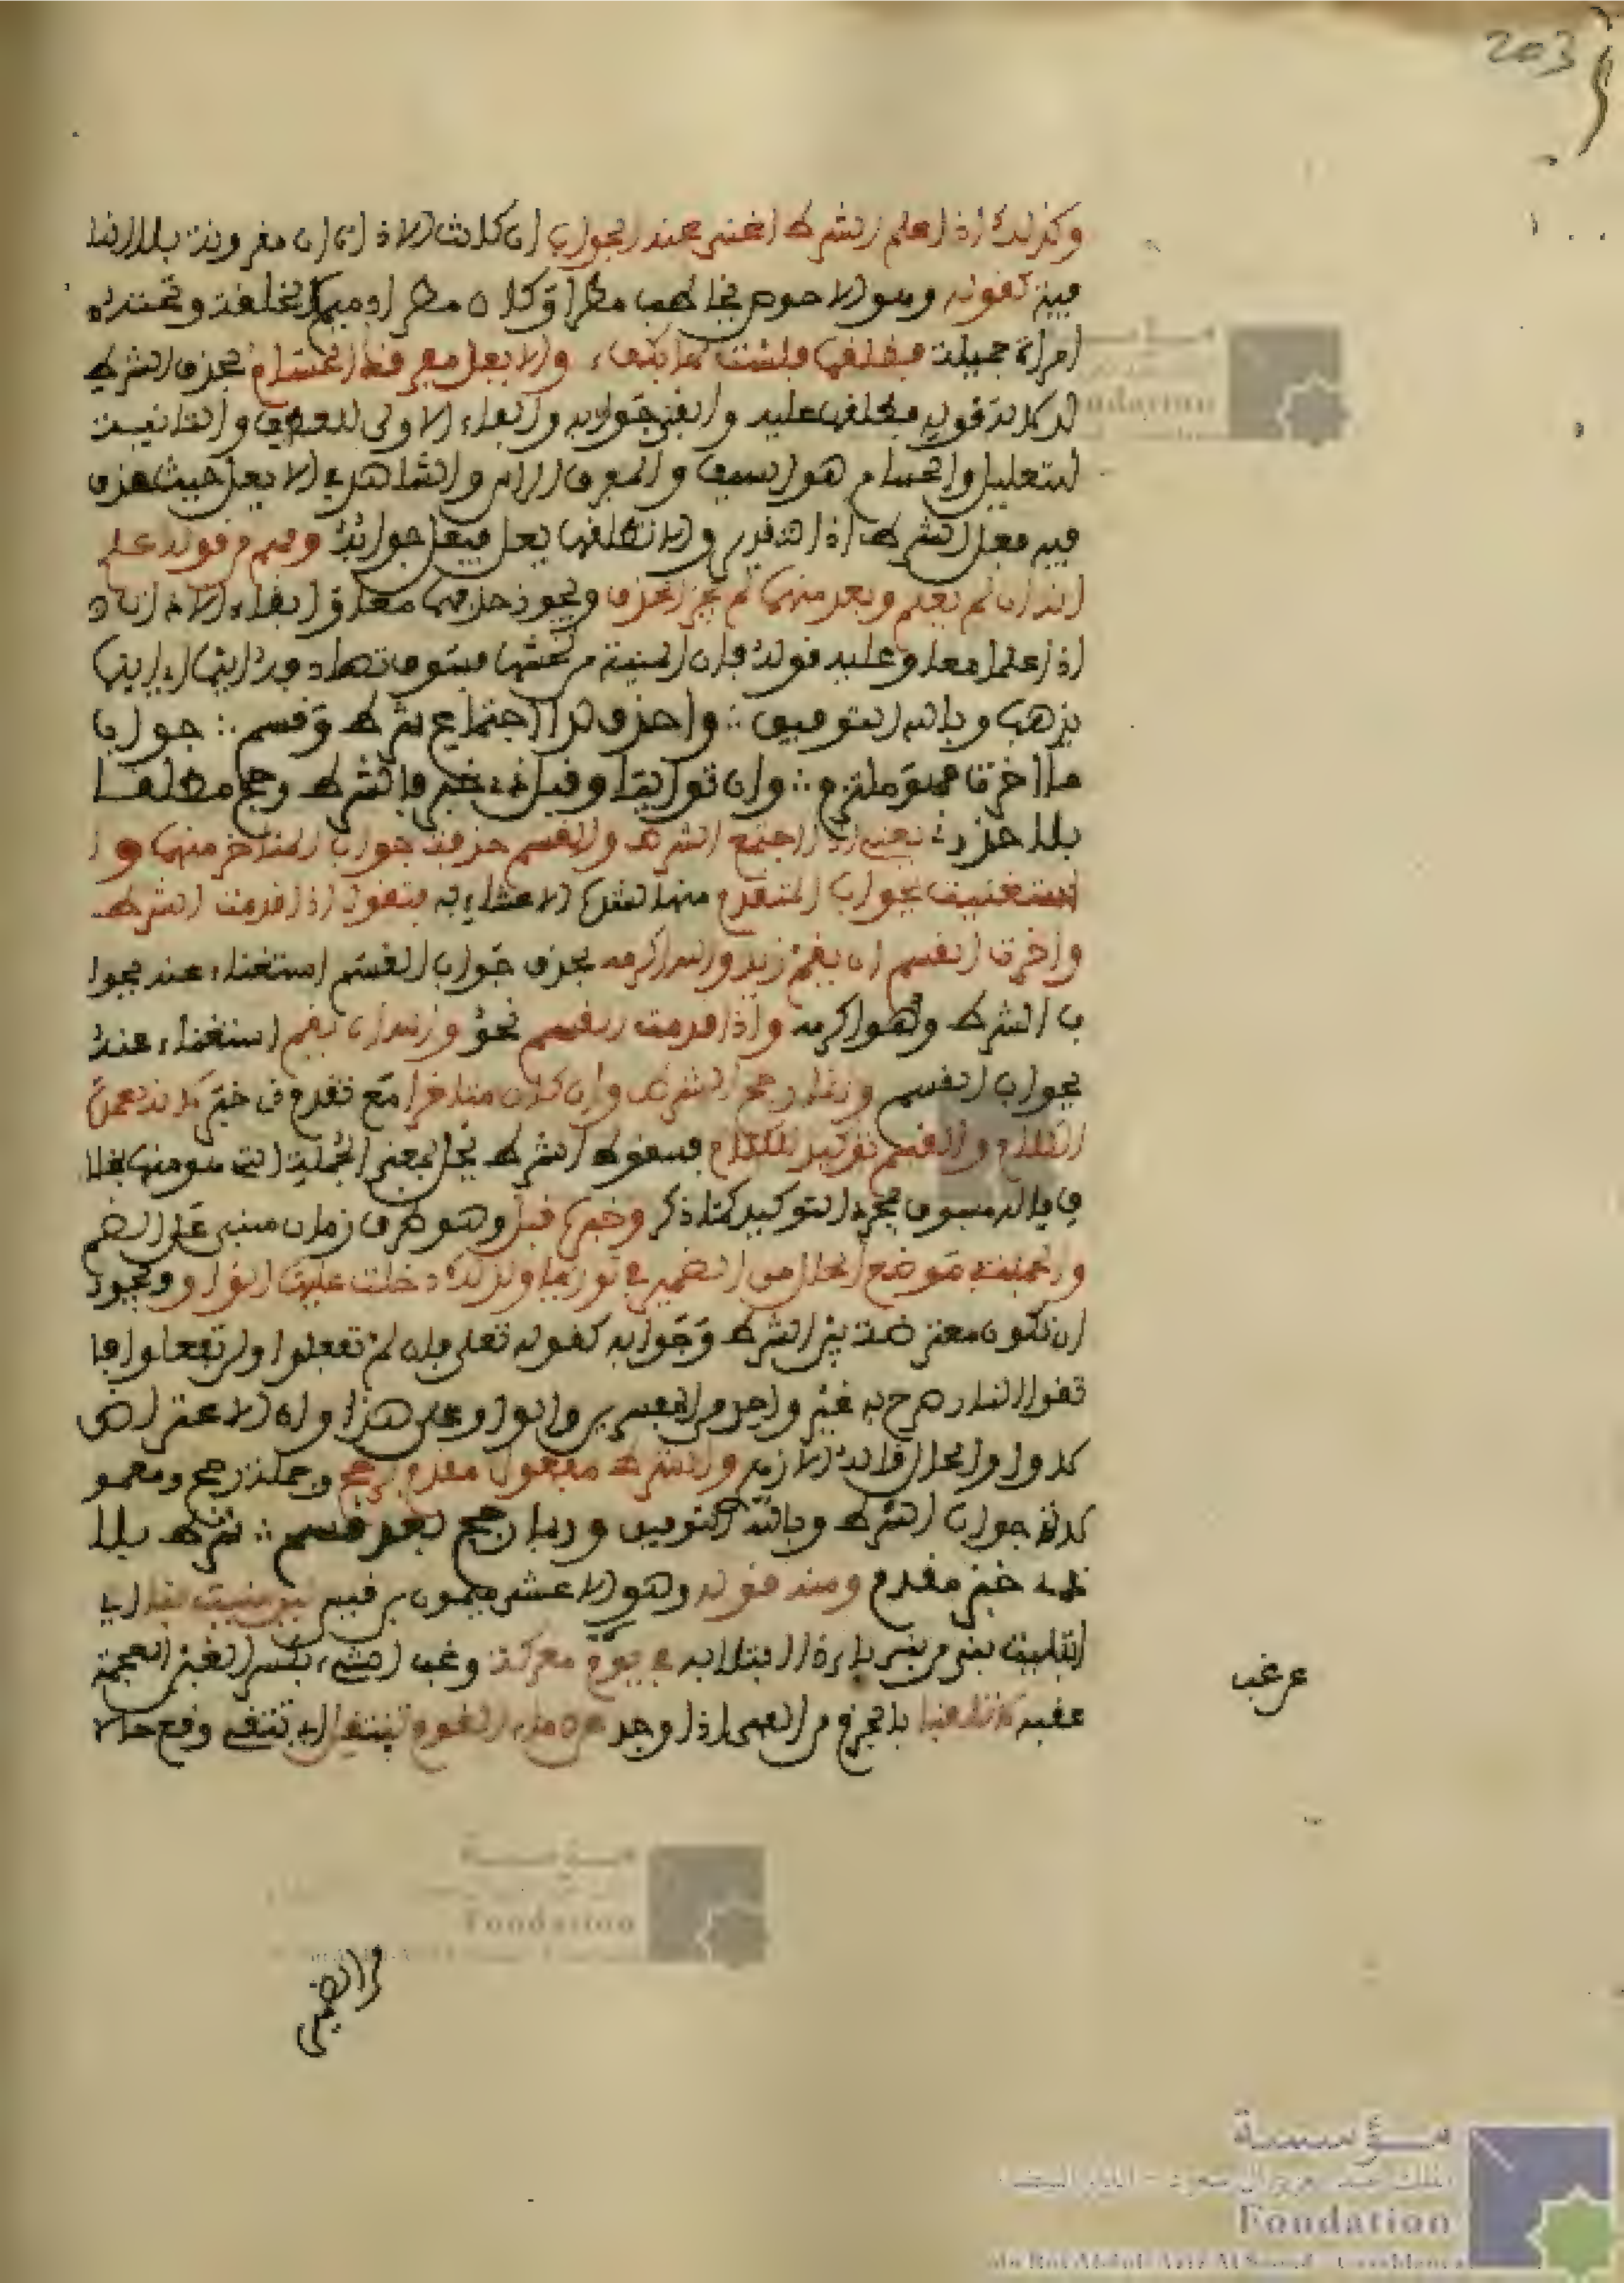 203
وكذلك اذا علم الشرط اغنى عنه الجواب ان كانت الاداة ان مقرونة بلا النا
فية كقوله وهو الاحوص يخاطب مطرا وكان مطر دميم الخلقة وتحته
امراة جميلة فطلقها فلست لها بكفء والا يعل مفرقك الحسام فحذف الشرط
لدلالة قوله فطلقها عليه وابقى جوابه والفاء الاولى للعطف والثانية
للتعليل والحسام هو السيف والمفرق الراس والشاهد في الا يعل حيث حذف
فيه فعل الشرط اذ التقدير والا تطلقها يعل فيعل جوابه وفهم من قوله علم
انه ان لم يعلم واحد منهما لم يجز الحذف ويجوز حذفهما معا وابقاء الاداة
اذا علما معا وعليه قوله فان المنية من يخشها فسوف تصادفه اينما اي اينما
يذهب وبالله التوفيق ∴ واحذف لدا اجتماع شرط وقسم ∴ جواب
ما اخرت فهو ملتزم ∴ وان تواليا وقبل ذو خبر فالشرط رجح مطلقا
بلا حذر ∴ يعني اذا اجتمع الشرط والقسم حذفت جواب المتاخر منهما و ا
ستغنيت بجواب المتقدم منهما فتقول اذا قدمت الشرط
واخرت القسم ان يقم زيد والله اكرمه بحذف جواب القسم استغناء عنه بجوا
ب الشرط وهو اكرمه واذا قدمت القسم نحو والله ان يقم استغناء عنه
بجواب القسم وانما رجح الشرط وان كان متاخرا مع تقدم ذي خبر لانه عمدة
الكلام والقسم توكيد للكلام فسقوط الشرط يخل بمعنى الجملة التي هو منها بخلا
ف القسم فهو مجرد التوكيد كما ذكر وخبر قبل وهو ظرف زمان مبني على الضم
والجملة موضع الحال من الضمير في تواليا ولذلك دخلت عليها الواو ويجوز
ان تكون معترضة بين الشرط وجوابه كقوله تعلى فان لم تفعلوا ولن تفعلوا فا
تقوا النار صرح به غير واحد من المفسرين والواو على هذا واو الاعتراض
لا واو الحال والشرط مفعول مقدم برجح وجملة رجح ومعمو
له جواب الشرط وبالله التوفيق وربما رجح بعد قسم ∴ شرط بلا
ذي خبر مقدم ومنه قوله وهو الاعشى ميمون بن قيس لئن منيت بنا اي
ابتليت بنا في يوم معركة وغب الشيء بكسر الغين المعجمة
عقبه لا تلفنا بالجزم من الفى اذا وجد عن دماء القوم ننتفل اي ننتفي وقع حالا
عن غب